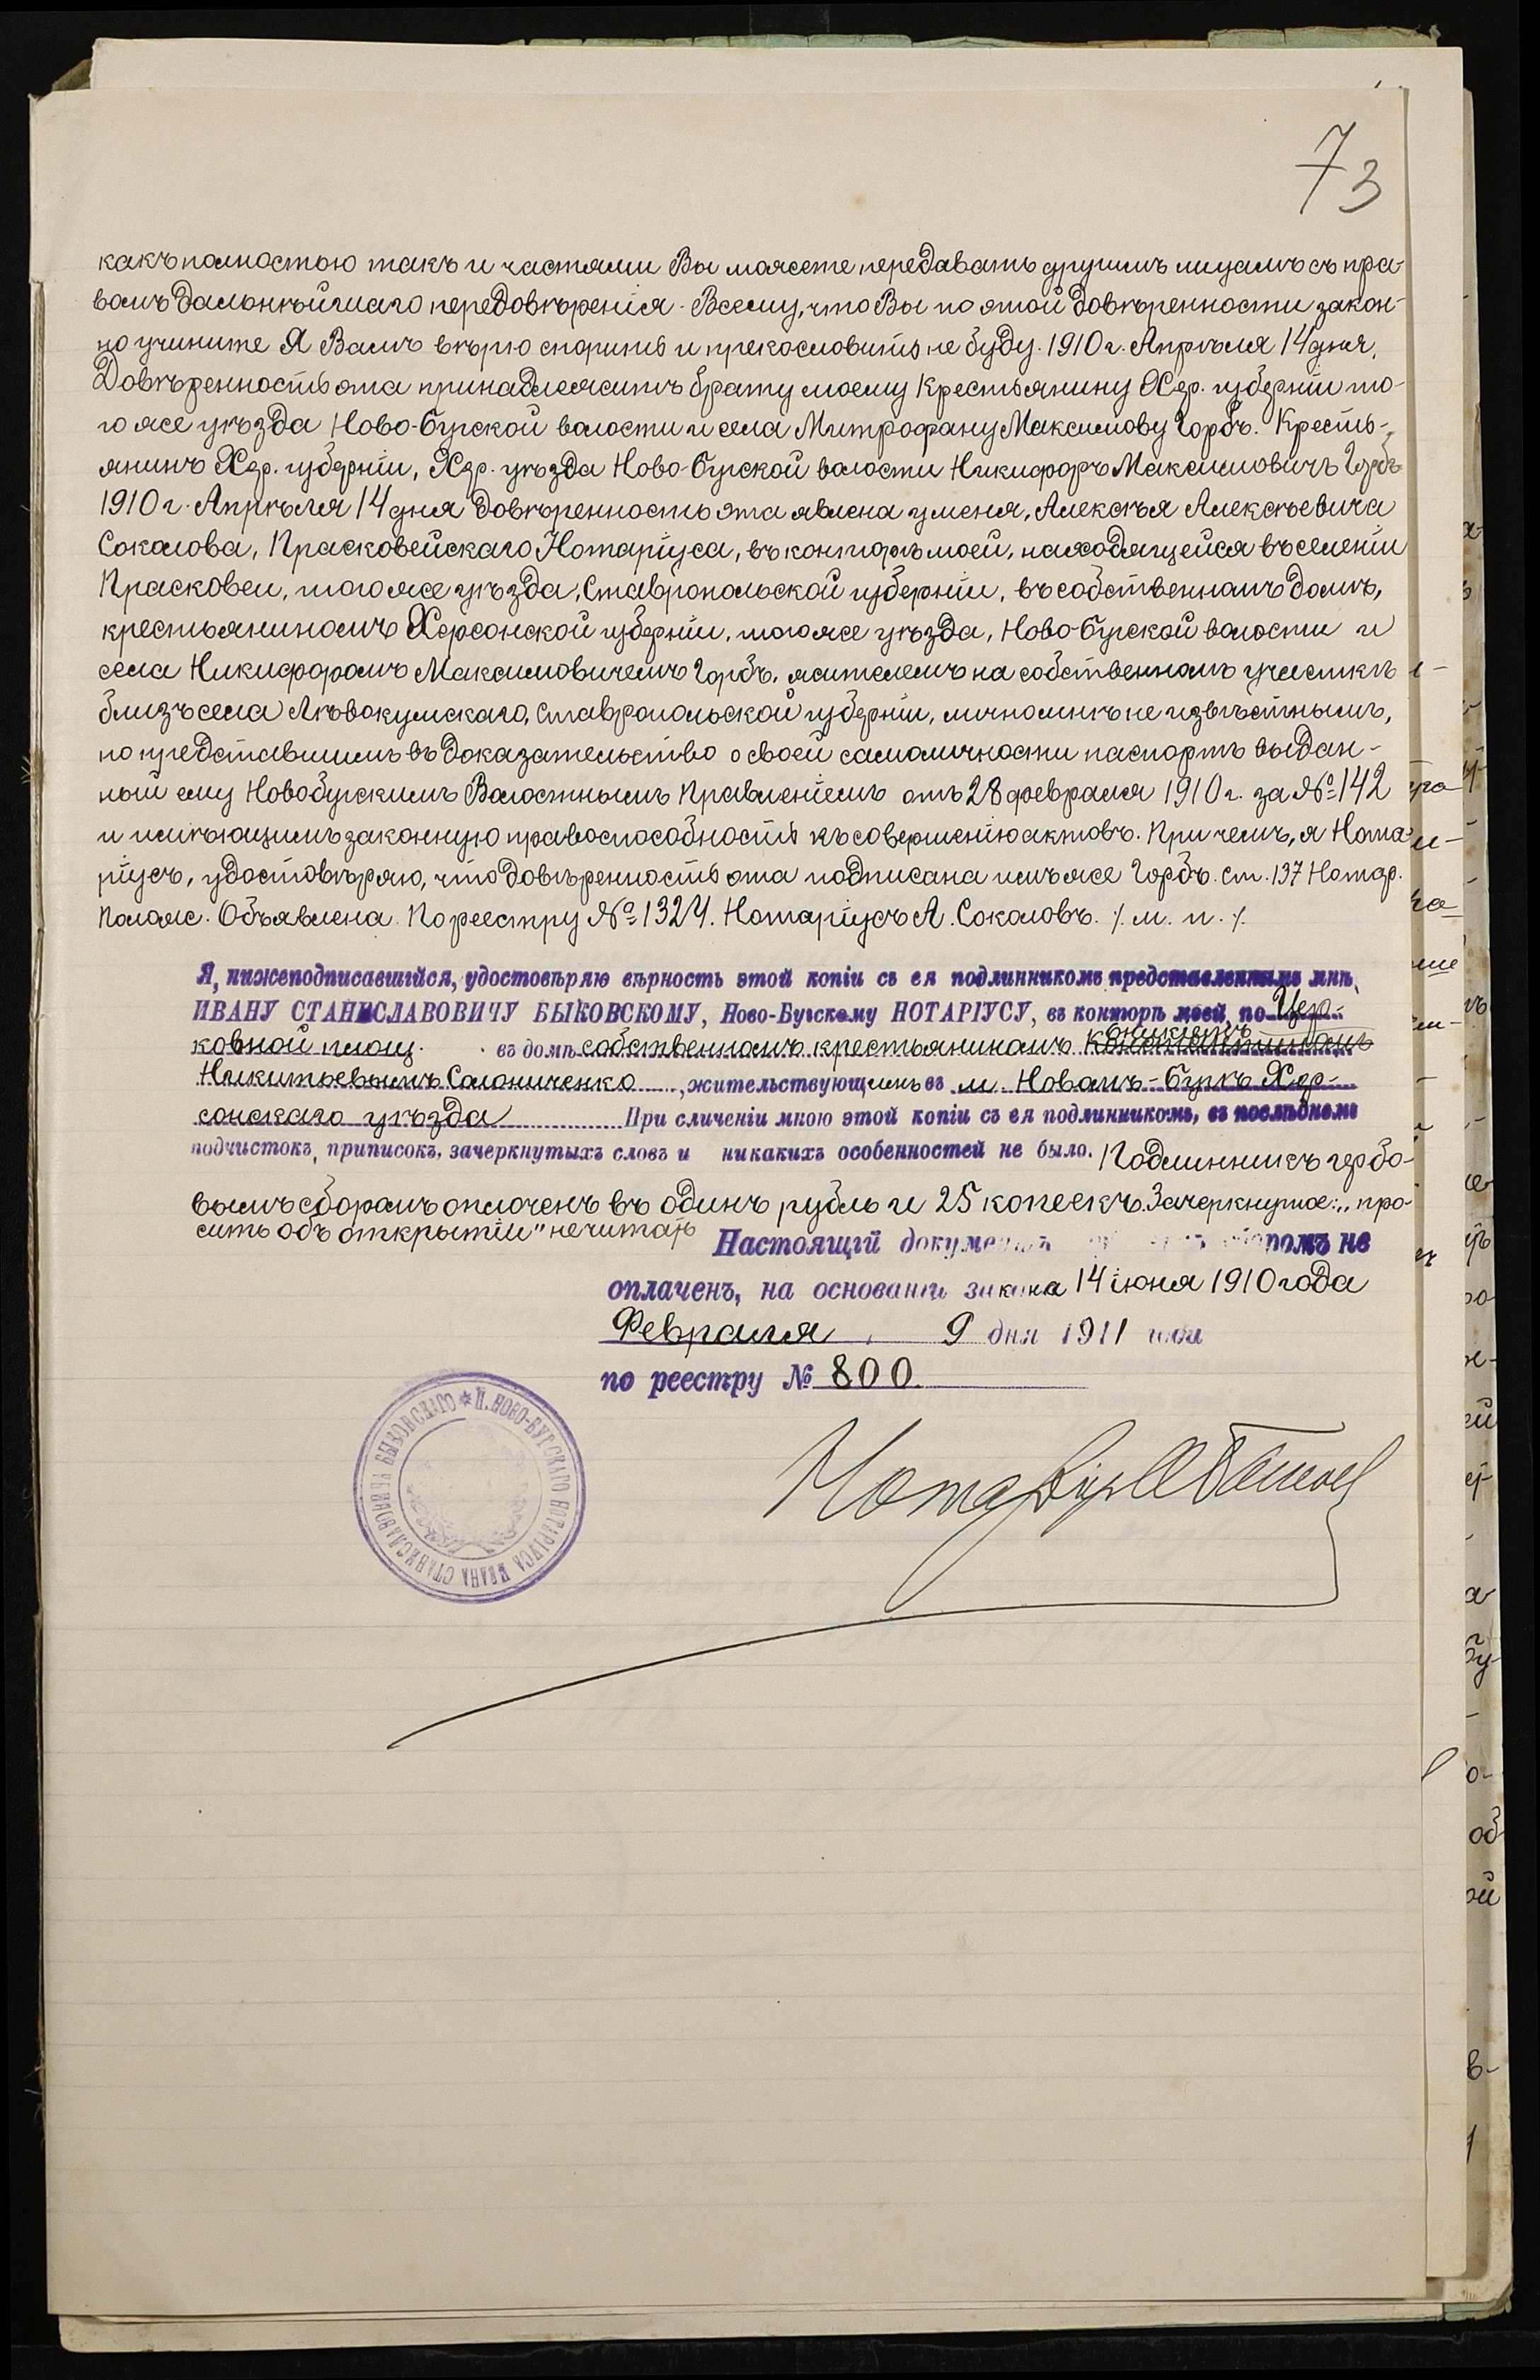 73
какъ полностью такъ и частями Вы можете передавать другимъ лицамъ съ пра-
вомъ дальнѣйшаго передовѣрія. Всему, что Вы по этой довѣренности закон-
но учините Я Вамъ вѣрю спорить и прекословить не буду. 1910 г. Апрѣля 14 дня.
Довѣренность эта принадлежитъ брату моему Крестьянину Хер. губерніи то-
го же уѣзда Ново-Бугской волости и села Митрофану Максимову Горбъ. Кресть-
янинъ Хер. губерніи, Хер. уѣзда Ново-Бугской волости Никифоръ Максимовичъ Горбъ
1910 г. Апрѣля 14 дня довѣренность эта явлена у меня, Алексѣя Алексѣевича
Соколова, Прасковейскаго Нотаріуса, въ конторѣ моей, находящейся въ селеніи
Прасковеи, того же уѣзда, Ставропольской губерніи, въ собственномъ домѣ,
крестьяниномъ Херсонской губерніи, того же уѣзда, Ново-Бугской волости и
села Никифоромъ Максимовичемъ Горбъ, жителемъ на собственномъ участкѣ
близъ села Лѣвокумскаго, Ставропольской губерніи, лично мнѣ не извѣстнымъ,
но представившимъ въ доказательство о своей самоличности паспортъ выдан-
ный ему Новобугскимъ Волостнымъ Правленіемъ отъ 28 февраля 1910 г. за № 142
и имѣющимъ законную правоспособность къ совершенію актовъ. При чемъ, я Нота-
ріусъ, удостовѣряю, что довѣренность эта подписана имъ же Горбъ. ст. 137 Нотар.
Полож. Объявлена. По реестру № 1324. Нотаріусъ А. Соколовъ. ٪ м. п. ٪
Я, нижеподписавшійся, удостовѣряю вѣрность этой копіи съ ея подлинникомъ представленнымъ мнѣ,
ИВАНУ СТАНИСЛАВОВИЧУ БЫКОВСКОМУ, Ново-Бугскому НОТАРІУСУ, въ конторѣ моей, по Цер-
ковной площ. въ домѣ собственномъ крестьяниномъ
Никитьевымъ Солониченко, жительствующимъ въ м. Новомъ-Бугѣ Хер-
сонскаго уѣзда При сличеніи мною этой копіи съ ея подлинникомъ, въ послѣднемъ
подчистокъ, приписокъ, зачеркнутыхъ словъ и никакихъ особенностей не было. Подлинникъ гербо-
вымъ сборомъ оплоченъ въ одинъ рубль и 25 копеекъ. Зачеркнутое: „про-
сить объ открытіи" не читать
Настоящій документъ не
оплаченъ, на основаніи закона 14 іюня 1910 года
Февраля 9 дня 1911 года
по реестру № 800
И. НОВО-БУГСКАГО НОТАРІУСА ИВАНА СТАНИСЛАВОВИЧА БЫКОВСКАГО
Нотаріусъ